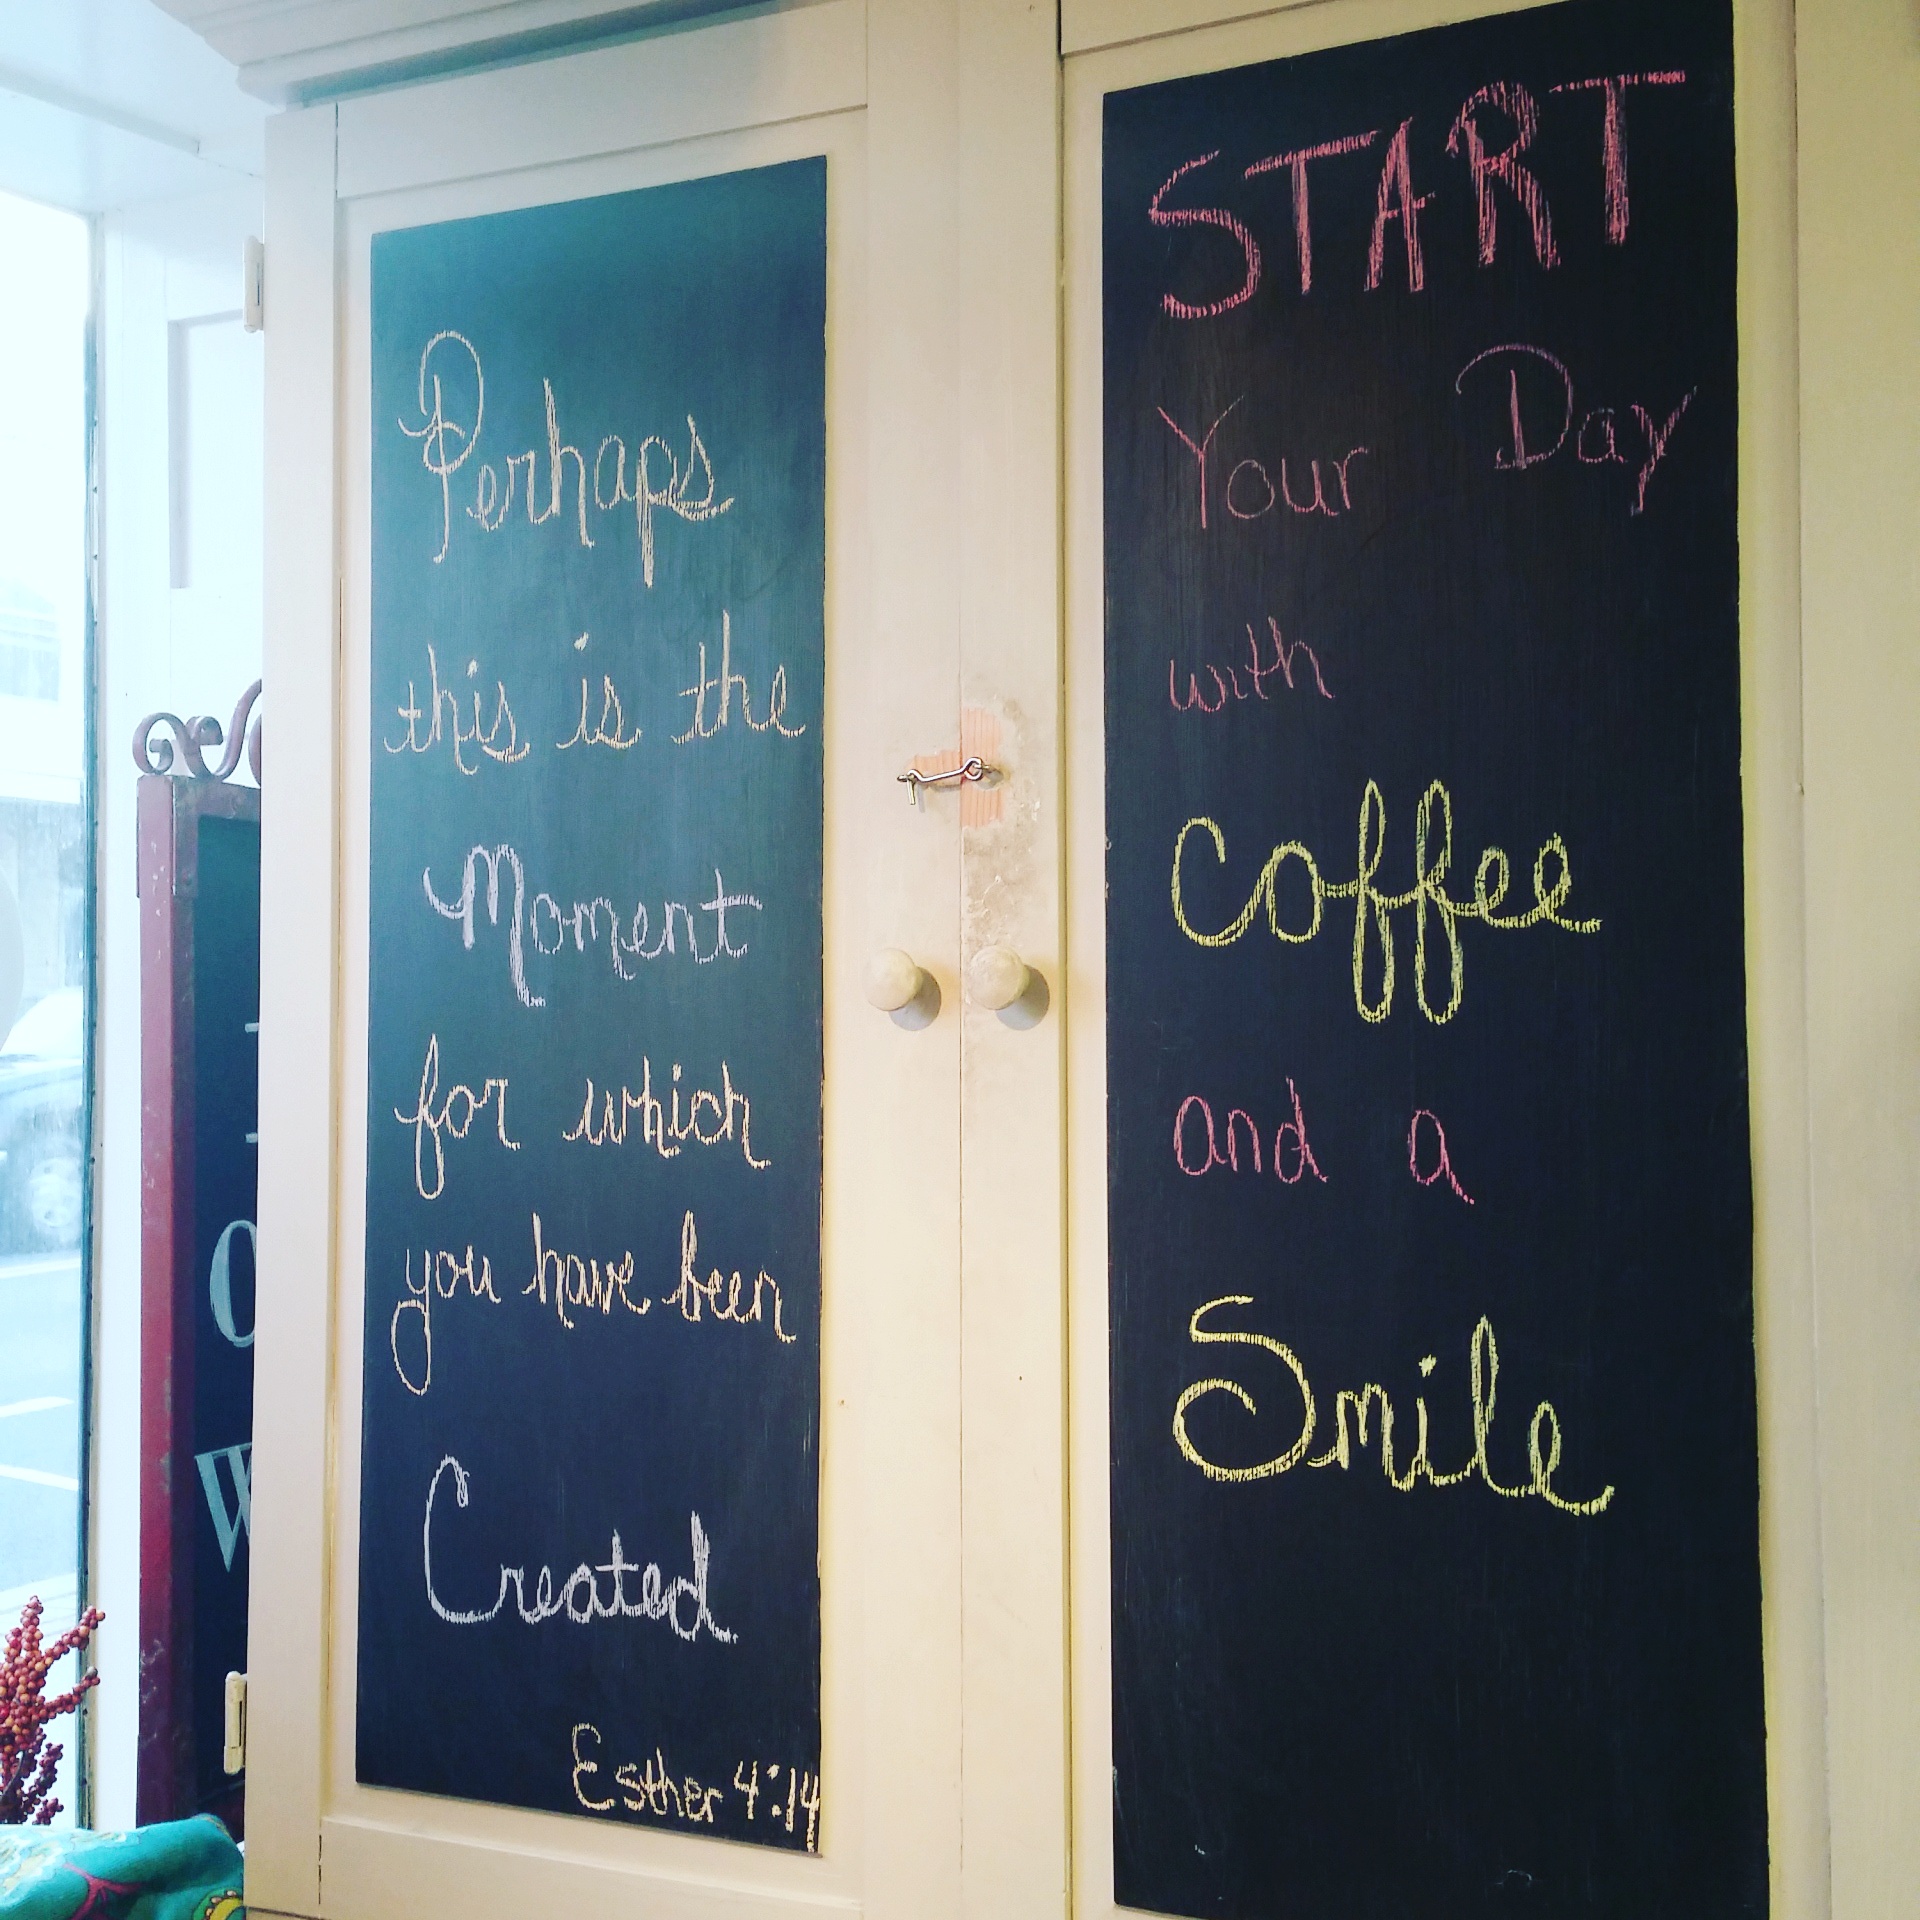 Perhaps
this is the
Moment
for which
you have been
Created
Esther 4:14
START
Your Day
with
Coffee
and a
Smile
O
W